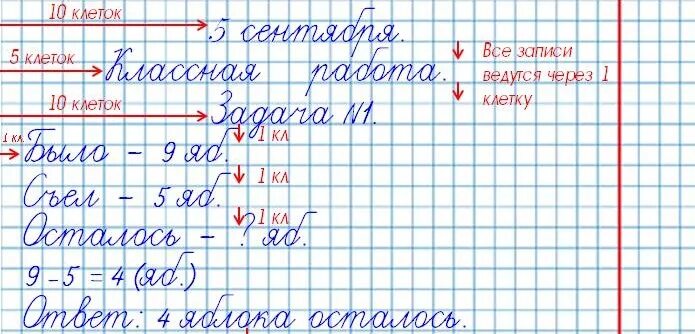 10 клеток
5 сентября.
5 клеток
Классная работа.
Все записи
ведутся через 1
клетку
10 клеток
Задача №1.
1 кл.
Было - 9 яб.
1 кл
Съел - 5 яб.
1 кл
Осталось - ? яб.
1 кл
9 - 5 = 4 (яб.)
Ответ: 4 яблока осталось.